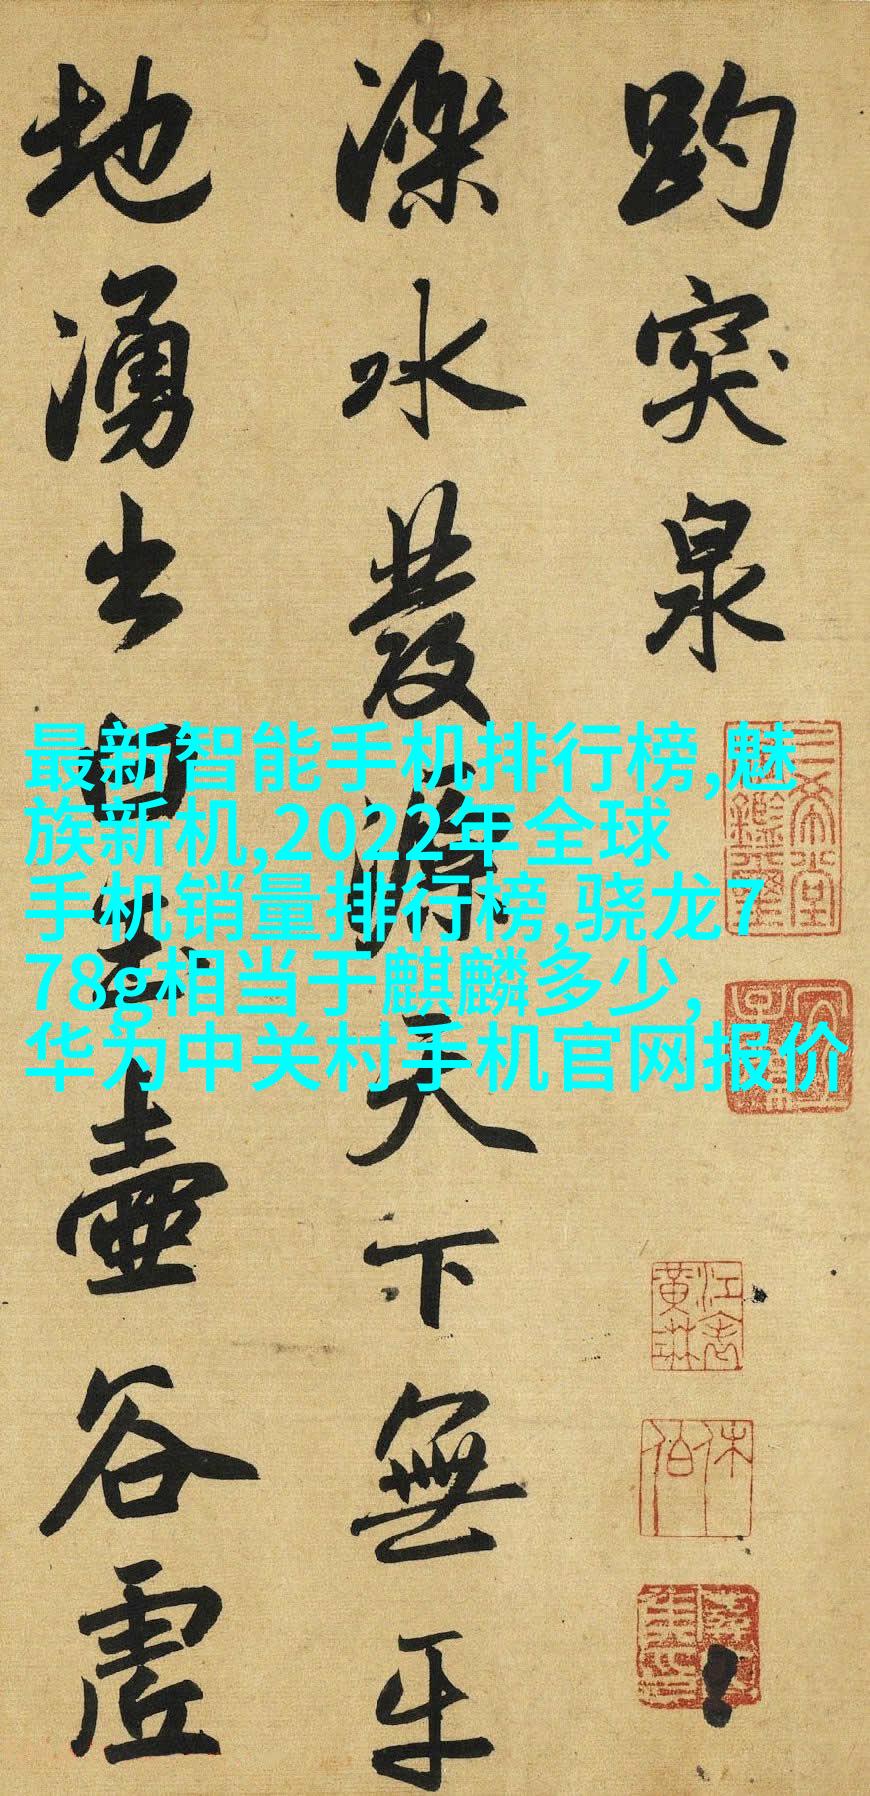 趵突泉
濼水發源天下無平
地湧出白玉壺谷虛
最新智能手机排行榜,魅
族新机,2022年全球
手机销量排行榜,骁龙7
78g相当于麒麟多少,
华为中关村手机官网报价
三希堂精鑑璽
宜子孫
江表黃琳
休伯